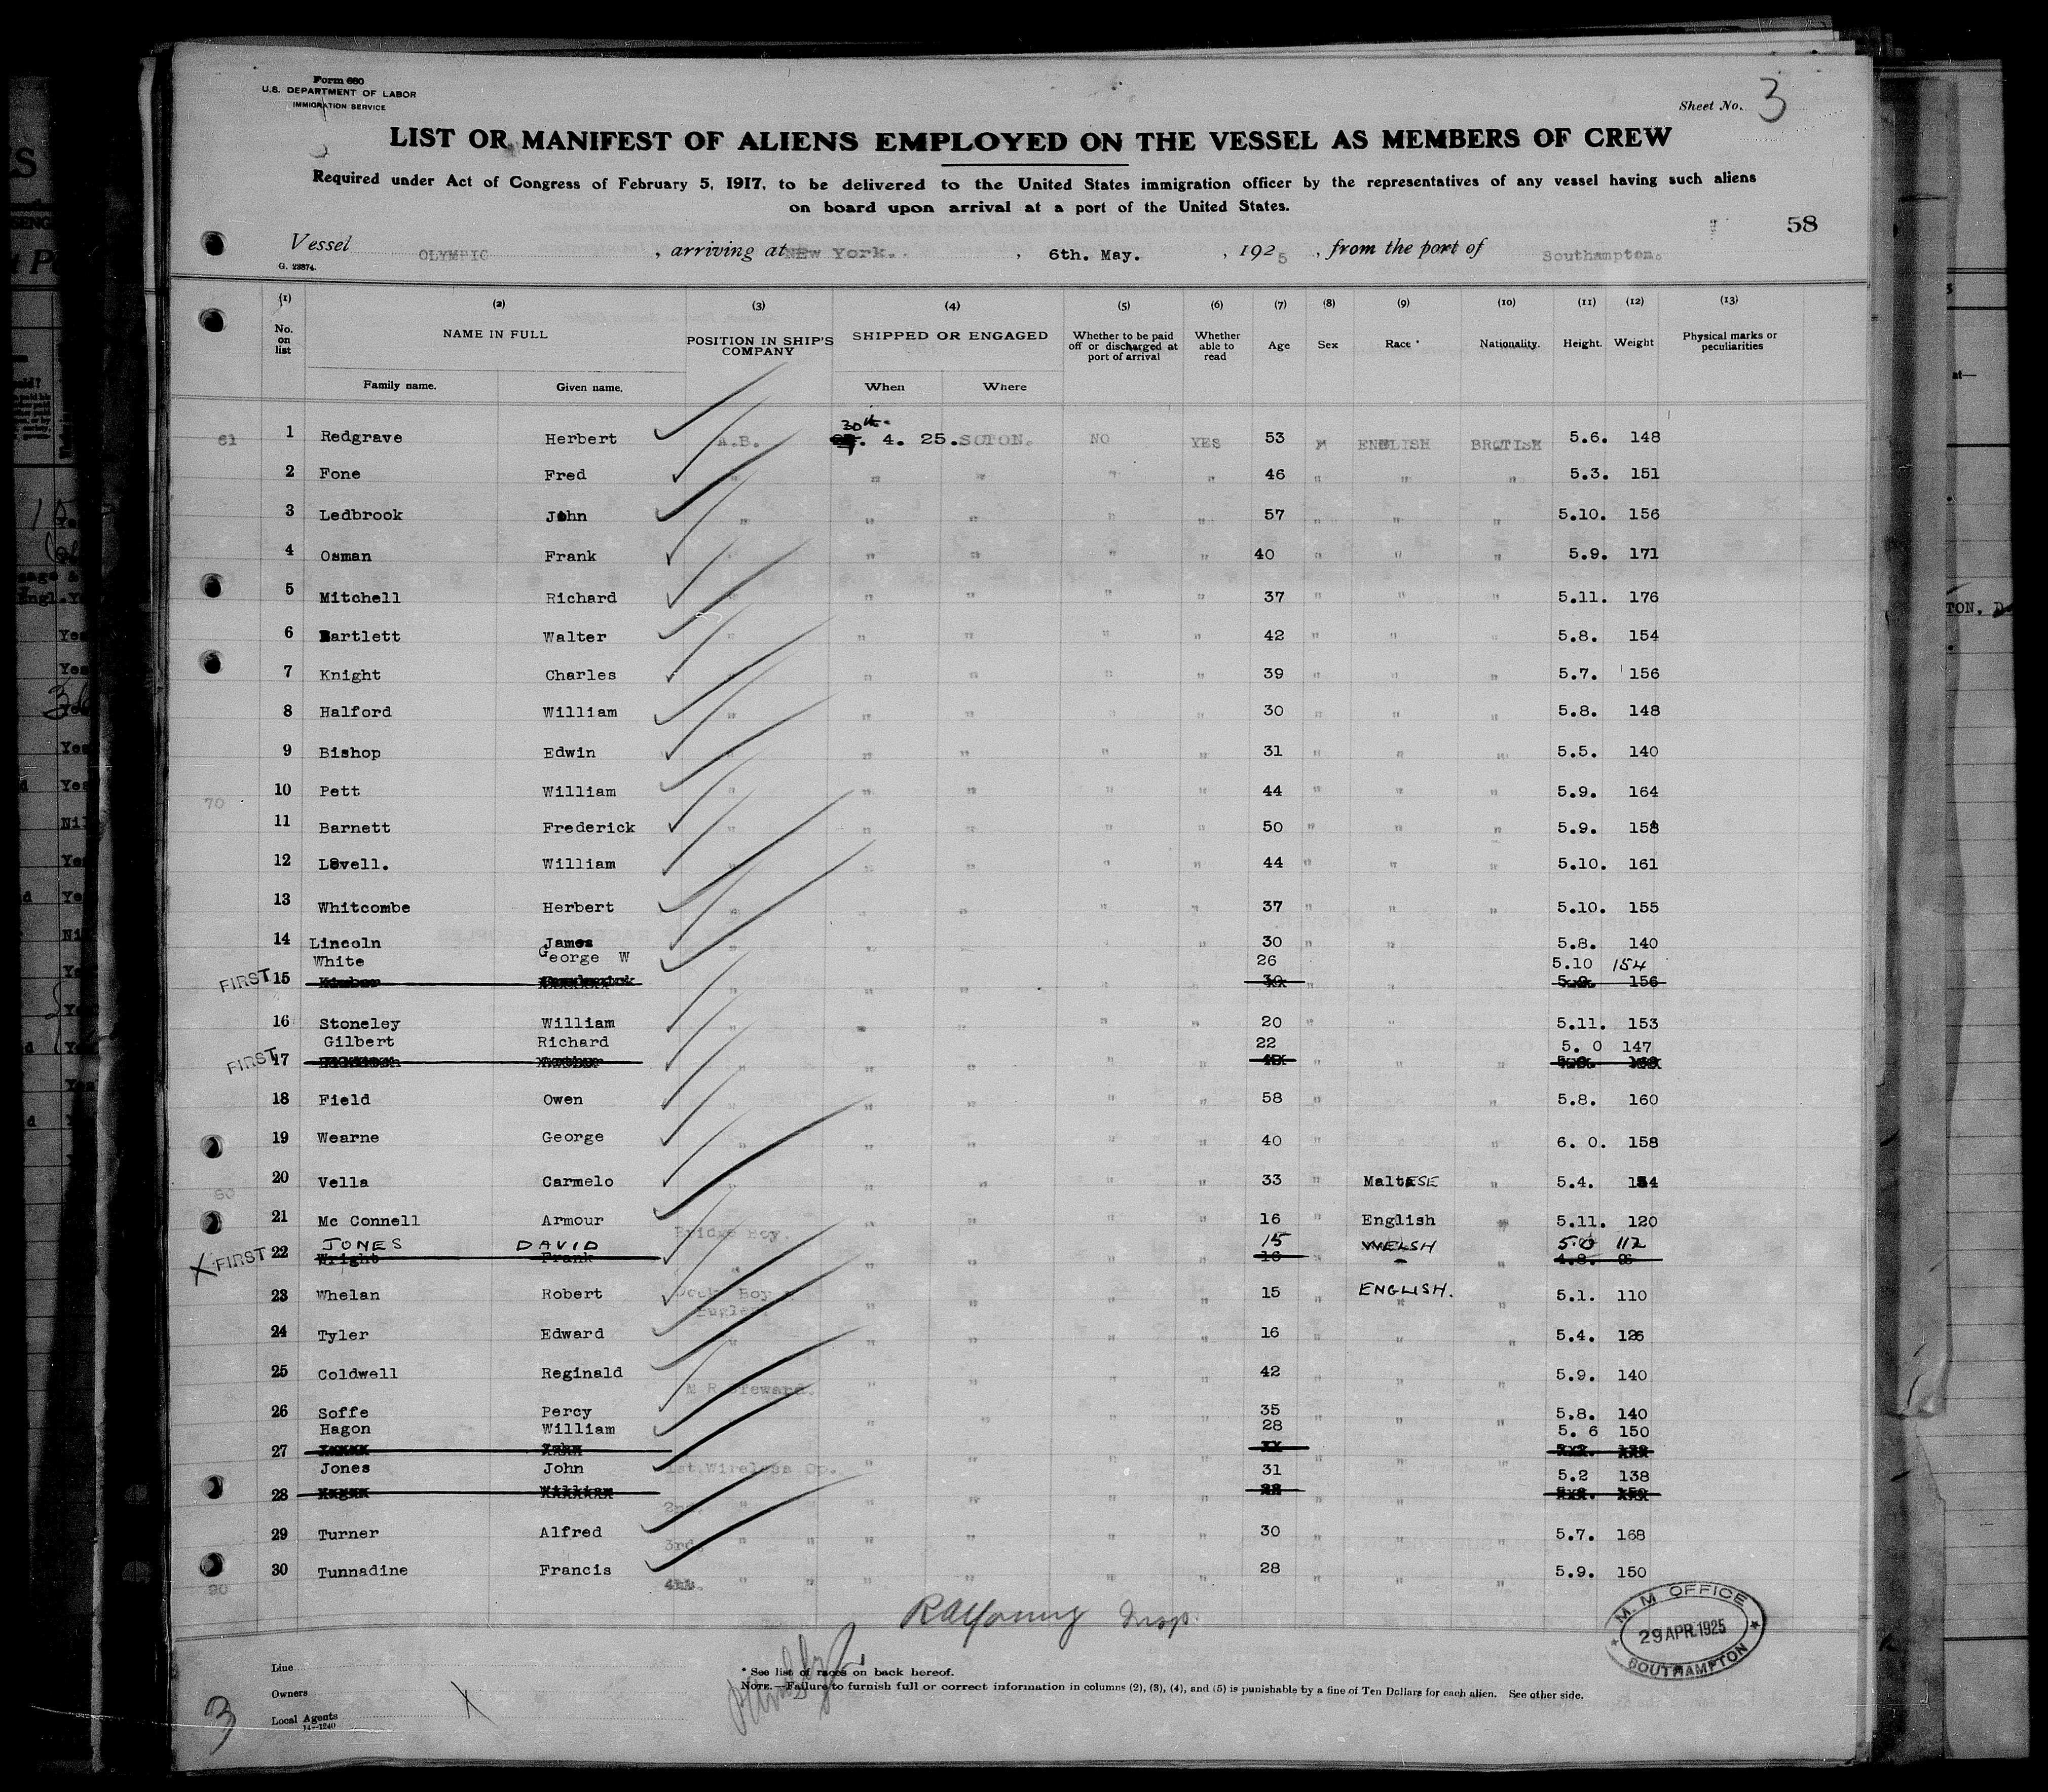 Form 680
U.S. DEPARTMENT OF LABOR
IMMIGRATION SERVICE
Sheet No. 3
LIST OR MANIFEST OF ALIENS EMPLOYED ON THE VESSEL AS MEMBERS OF CREW
Required under Act of Congress of February 5, 1917, to be delivered to the United States immigration officer by the representatives of any vessel having such aliens
on board upon arrival at a port of the United States.
58
Vessel OLYMPIC, arriving at NEW York., 6th. May., 1925, from the port of Southampton.
G. 22874.
(1) (2) (3) (4) (5) (6) (7) (8) (9) (10) (11) (12) (13)
No. on list NAME IN FULL POSITION IN SHIP'S COMPANY SHIPPED OR ENGAGED Whether to be paid off or discharged at port of arrival Whether able to read Age Sex Race * Nationality. Height. Weight Physical marks or peculiarities
Family name. Given name. When Where
61 1 Redgrave Herbert A.B. 30th. 4. 25. SOTON. NO YES 53 M ENGLISH BRITISH 5.6. 148
2 Fone Fred " " " " " 46 " " " 5.3. 151
3 Ledbrook John " " " " " 57 " " " 5.10. 156
4 Osman Frank " " " " " 40 " " " 5.9. 171
5 Mitchell Richard " " " " " 37 " " " 5.11. 176
6 Bartlett Walter " " " " " 42 " " " 5.8. 154
7 Knight Charles " " " " " 39 " " " 5.7. 156
8 Halford William " " " " " 30 " " " 5.8. 148
9 Bishop Edwin " " " " " 31 " " " 5.5. 140
70 10 Pett William " " " " " 44 " " " 5.9. 164
11 Barnett Frederick " " " " " 50 " " " 5.9. 158
12 Lovell. William " " " " " 44 " " " 5.10. 161
13 Whitcombe Herbert " " " " " 37 " " " 5.10. 155
14 Lincoln James " " " " " 30 " " " 5.8. 140
White George W 26 5.10 154
FIRST 15 30 156
16 Stoneley William " " " " " 20 " " " 5.11. 153
Gilbert Richard 22 5. 0 147
FIRST 17
18 Field Owen " " " " " 58 " " " 5.8. 160
19 Wearne George " " " " " 40 " " " 6. 0. 158
80 20 Vella Carmelo " " " " " 33 " MaltESE " 5.4.
21 Mc Connell Armour Bridge Boy. " " " " 16 " English " 5.11. 120
JONES DAVID 15 WELSH 5.0 112
X FIRST 22 Wright Frank " " " " " 16 " " 4.8.
23 Whelan Robert Deck Boy & Bugler. " " " " 15 " ENGLISH. " 5.1. 110
24 Tyler Edward " " " " " 16 " " " 5.4. 126
25 Coldwell Reginald M R Steward. " " " " 42 " " " 5.9. 140
26 Soffe Percy " " " " 35 " " " 5.8. 140
Hagon William 28 5. 6 150
27 1st. Wireless Op.
Jones John 31 5.2 138
28 2nd. " "
29 Turner Alfred 3rd. " " " " " " 30 " " " 5.7. 168
90 30 Tunnadine Francis 4th. " " " " " " 28 " " " 5.9. 150
M.M OFFICE
29 APR. 1925
SOUTHAMPTON
Line
Owners
Local Agents
14—1240
* See list of races on back hereof.
NOTE.—Failure to furnish full or correct information in columns (2), (3), (4), and (5) is punishable by a fine of Ten Dollars for each alien. See other side.
3
X